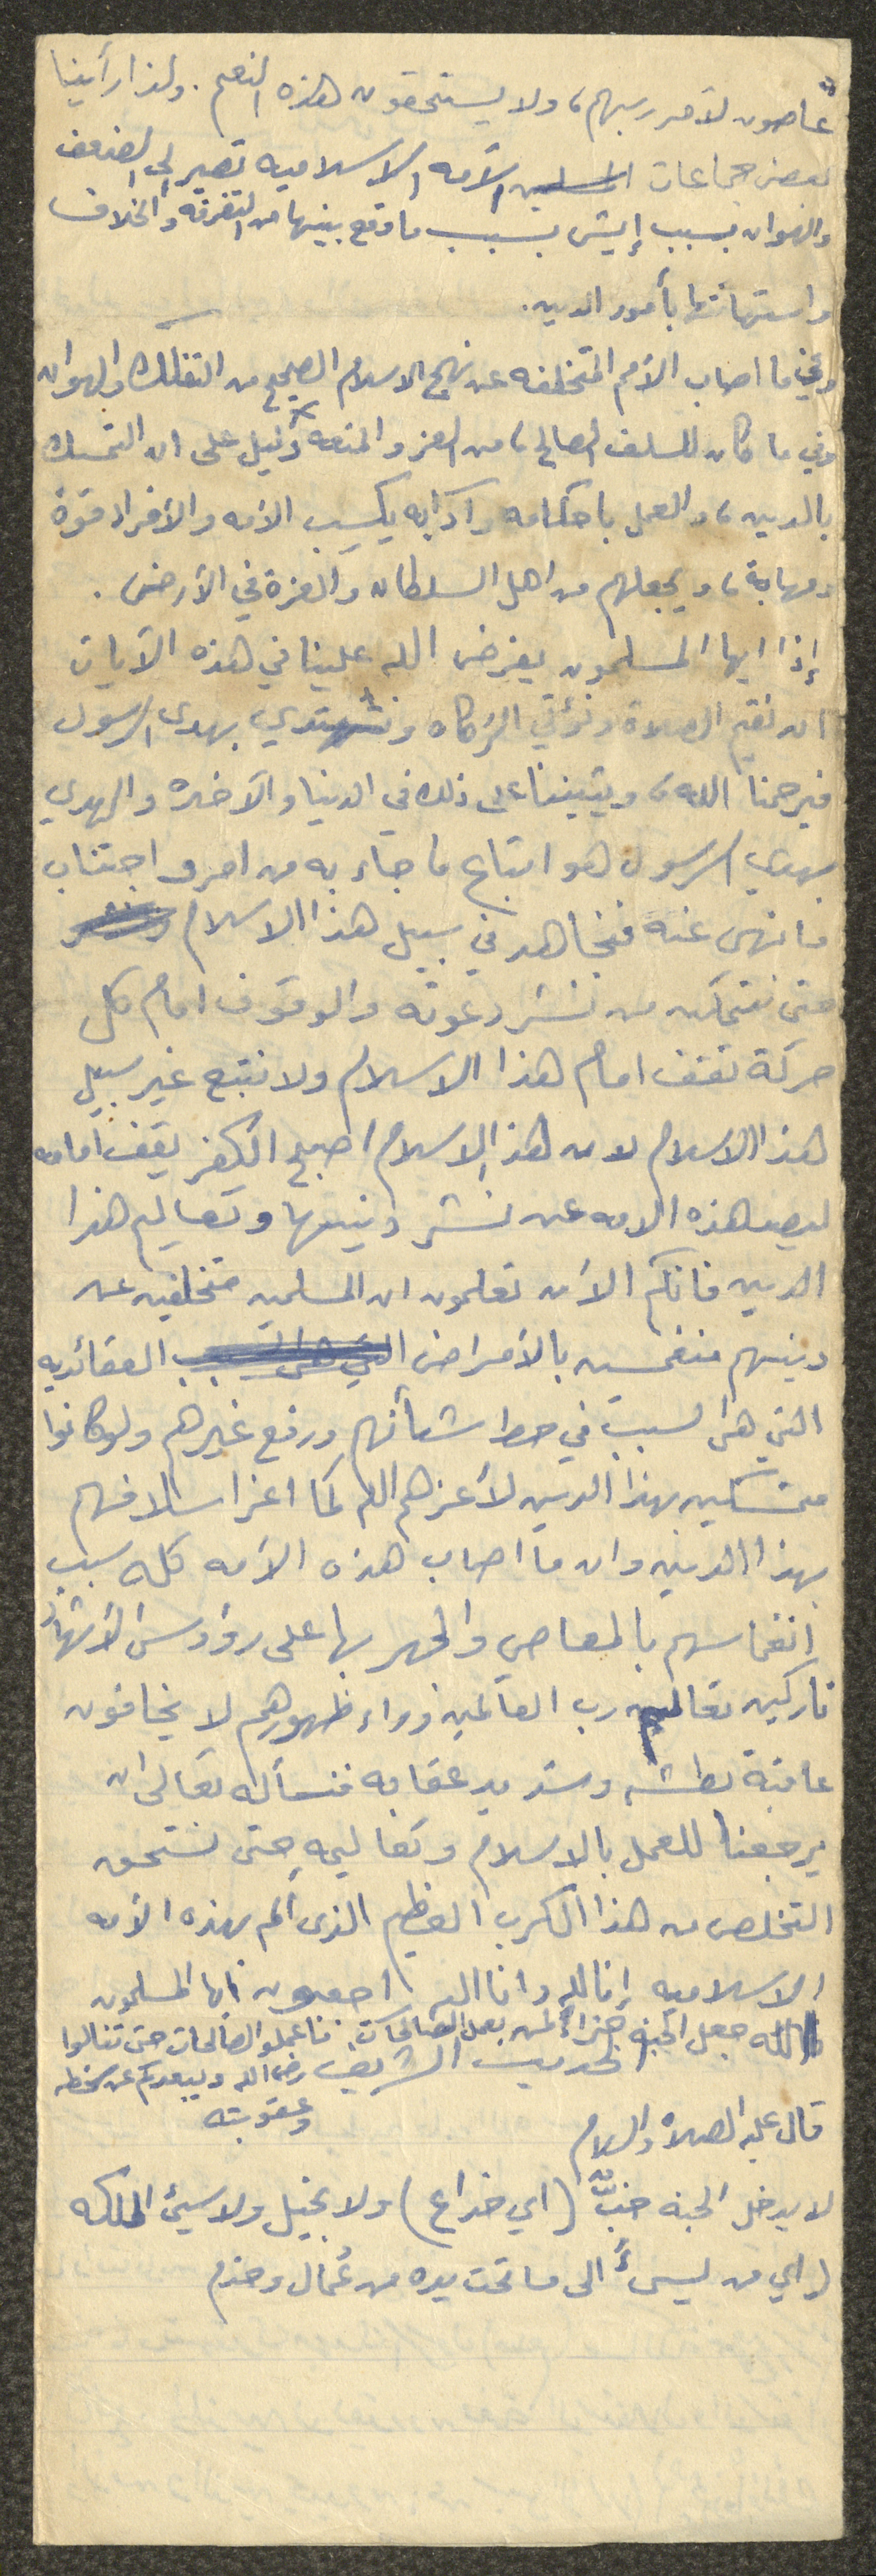 عاصون لأمر ربهم، ولا يستحقون هذه النعم. ولذا رأينا
بعض جماعات المسلمين الأمه الاسلاميه تصير إلى الضعف
والهوان بسبب إيش بسبب ما وقع بينها من التفرقه والخلاف
واستهانتها بأمور الدين.
وفي ما اصاب الأمم المتخلفه عن نهج الاسلام الصحيح من التفكك والهوان
وفي ما كان للسلف الصالح، من العز والمنعه دليل على ان التمسك
بالدين، والعمل باحكامه وآدابه يكسِب الأمه والأفراد قوة
ومهابة، ويجعلهم من اهل السلطان والعزة في الأرض.
إذا ايها المسلمون يفرض الله علينا في هذه الآيات
ان نقيم الصلاة ونؤتي الزكاه ونهتدي بهدى الرسول
فيرحمنا الله، ويثيبنا على ذلك في الدنيا والآخره والهدي
بهدي الرسول هو اتباع ما جاء به من امر واجتناب
ما نهى عنه فنجاهد في سبيل هذا الاسلام
حتى نتمكن من نشر دعوته والوقوف امام كل
حركة تقف امام هذا الاسلام ولا نتبع غير سبيل
هذا الاسلام لان هذا الاسلام اصبح الكفر يقف أمامه
ليصد هذه الامه عن نشر دينها وتعاليم هذا
الدين فانكم الآن تعلمون ان المسلمين متخلفين عن
دينهم منغمسين بالأمراض التي هي السبب العقائديه
التي هي السبب في حط شأنهم ورفع غيرهم ولو كانوا
متمسكين بهذا الدين لأعزهم الله كما اعز اسلافهم
بهذا الدين وان ما اصاب هذه الأمه كله سبب
انغماسهم بالمعاصي والجهر بها على رؤوس الأشهاد
تاركين تعاليم رب العالمين وراء ظهورهم لا يخافون
عاقبة بطشه وشديد عقابه فنسأله تعالى ان
يرجعنا للعمل بالاسلام وتعاليمه حتى نستحق
التخلص من هذا الكرب العظيم الذى ألم بهذه الأمه
الاسلاميه إنا لله وانا اليه راجعون ايها المسلمون
الله جعل الجنه جزاءً لمن يعمل الصالحات. فاعملو الصالحات حتى تنالوا
رضى الله ويبعدكم عن سخطه
وعقوبته
الحديث الشريف
قال عليه الصلاه والسلام
لا يدخل الجنه خبٌّ (اي خداع) ولا بخيل ولا سيئ الملكه
(اي من يسيءُ الى ما تحت يده من عُمال وخدم